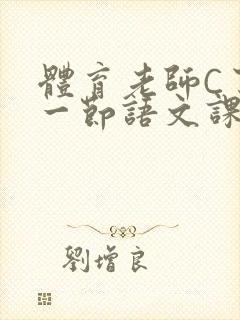 體育老師C
一節語文課
劉增良